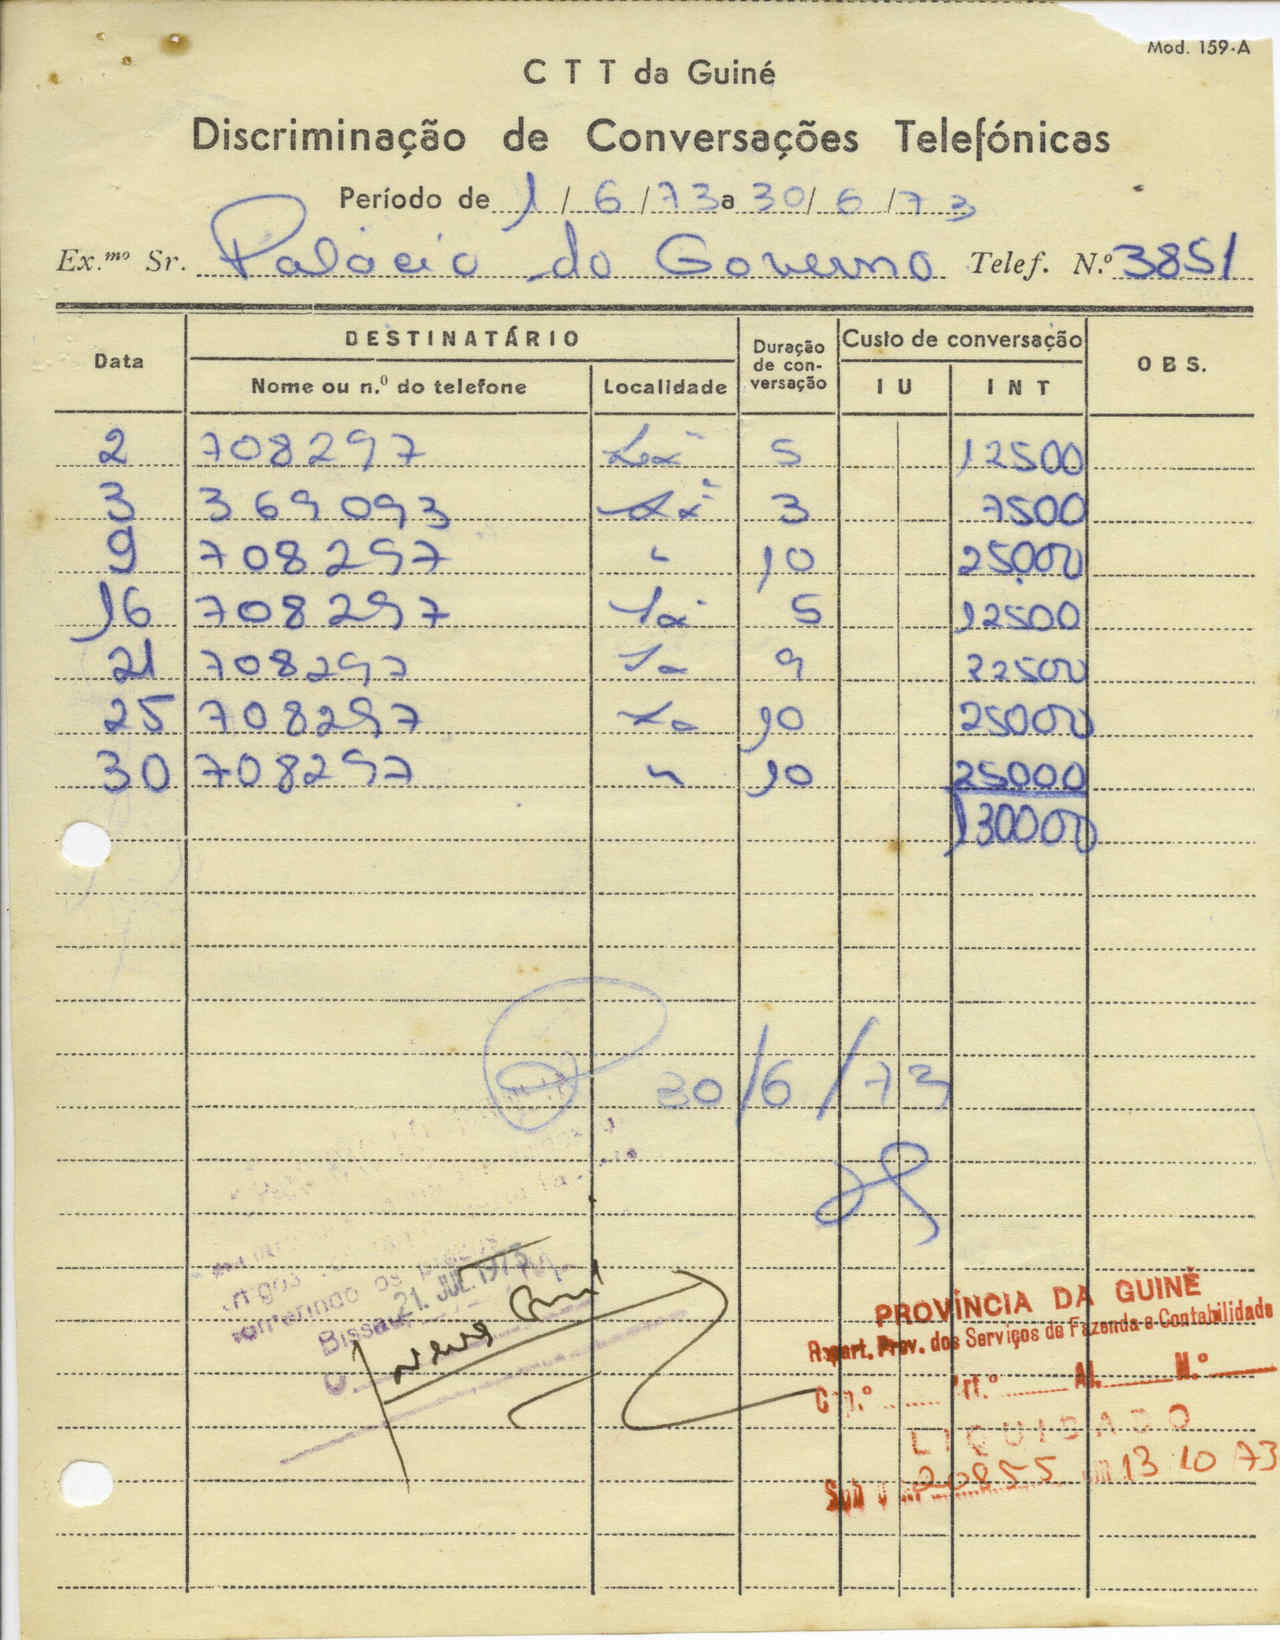 Mod. 159-A
C T T da Guiné
Discriminação de Conversações Telefónicas
Período de 1/6/73 a 30/6/73
Ex.mo Sr. Palácio do Governo Telef. N.º 3851
Data DESTINATÁRIO Duração de con- versação Custo de conversação OBS.
Nome ou n.º do telefone Localidade I U I N T
2 708297 Lxª 5 12500
3 369093 Lxª 3 7500
9 708297 " 10 25000
16 708297 Lxª 5 12500
21 708297 9 22500
25 708297 10 25000
30 708297 " 10 25000
130000
30/6/73
Bissau 21. JUL. 1973
PROVÍNCIA DA GUINÉ
Repart. Prov. dos Serviços de Fazenda e Contabilidade
Cap.º Art.º Al. N.º
LIQUIDADO
Sob o n.º 20855 em 13 10 73